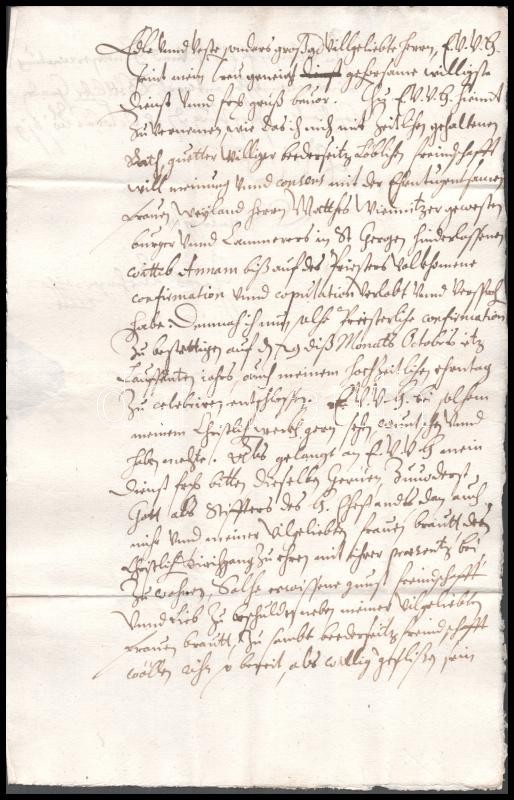 Edle Vnnd Veste sonders großg Villgeliebte Herren, E. V. V. H.
seint mein treu geneigt gehorsame willigste
dienst Vnnd freß gruß beuor. E. V. V. H. hiemit
Zu Vernemen wie das ich mich mit zeitlichen gehaltenen
Rath, guetter williger beederseitz löblichen freindschafft
will meinung Vnnd consens mit der Ehrntugentsamen
frauen Weyland Herrn Matthes Wiennitzer gewesten
burger Vnnd Cammerers in St Gergen hinderlassenen
wittib Annam biß auf des Priesters volkhomene
confirmation Vnnd copulation verlobt Vnnd versproch
habe: Demnach ich nun solche Priesterliche confirmation
Zu bestettigen auf diß Monats Octobris itz
Lauffenten iahrs auch meinem hochzeitlichen ehrntag
Zu celebrieren entschlossen. E. V. V. H. bei solchem
meinem Christlich werckh gern sehen Vnnd
haben mechte. Als gelangt an E. V. V. H. mein
dienst bitten dieselben geruen Zuuorderst
Gott als Stiffters des H. Ehestandts dan auch
mir Vnnd meiner Vilgeliebten frauen brautt den
Christlich Kirchgang Zu ehren mit ihrer praesentz bei
Zu wohnen, Solche erwissene gunst freindschafft
Vnnd lieb Zu beschulden neben meiner Vilgeliebten
frauen brautt, Zu sambt beederseitz freindschafft
wöllen ich so bereit, als willig geflissen sein